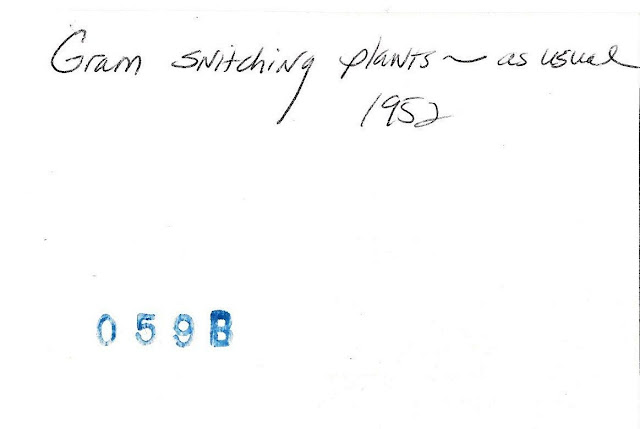 Gram snitching plants ~ as usual
1952
059B